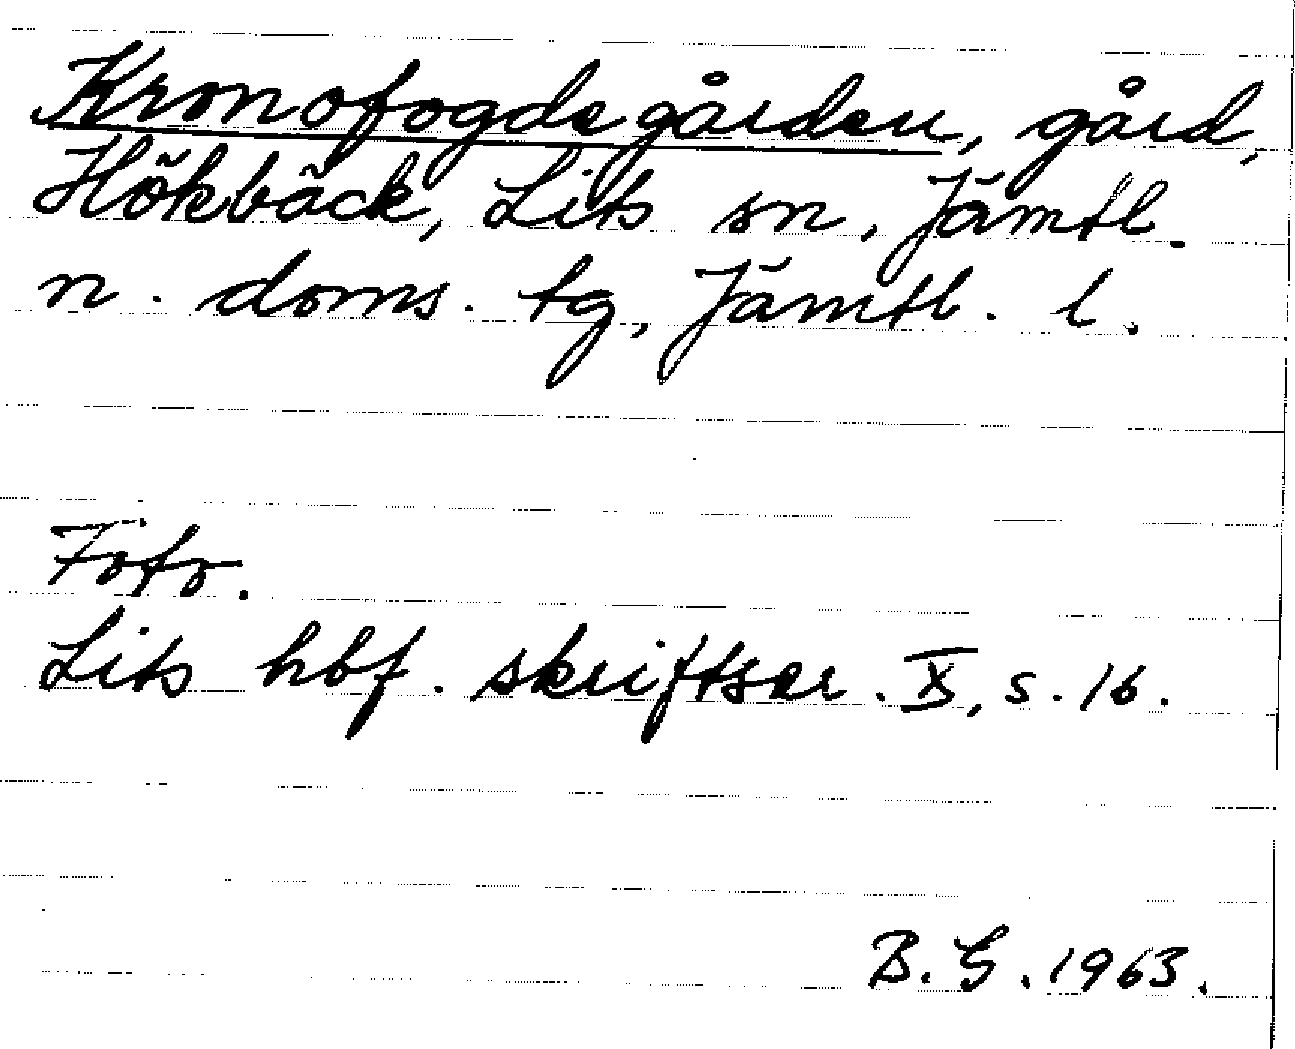 Kronofogdegården, gård,
Hökbäck, Lits sn, Jämtl.
n. doms. tg, Jämtl. l.
Foto.
Lits hbf. skriftser. X, s. 16.
B. G. 1963.